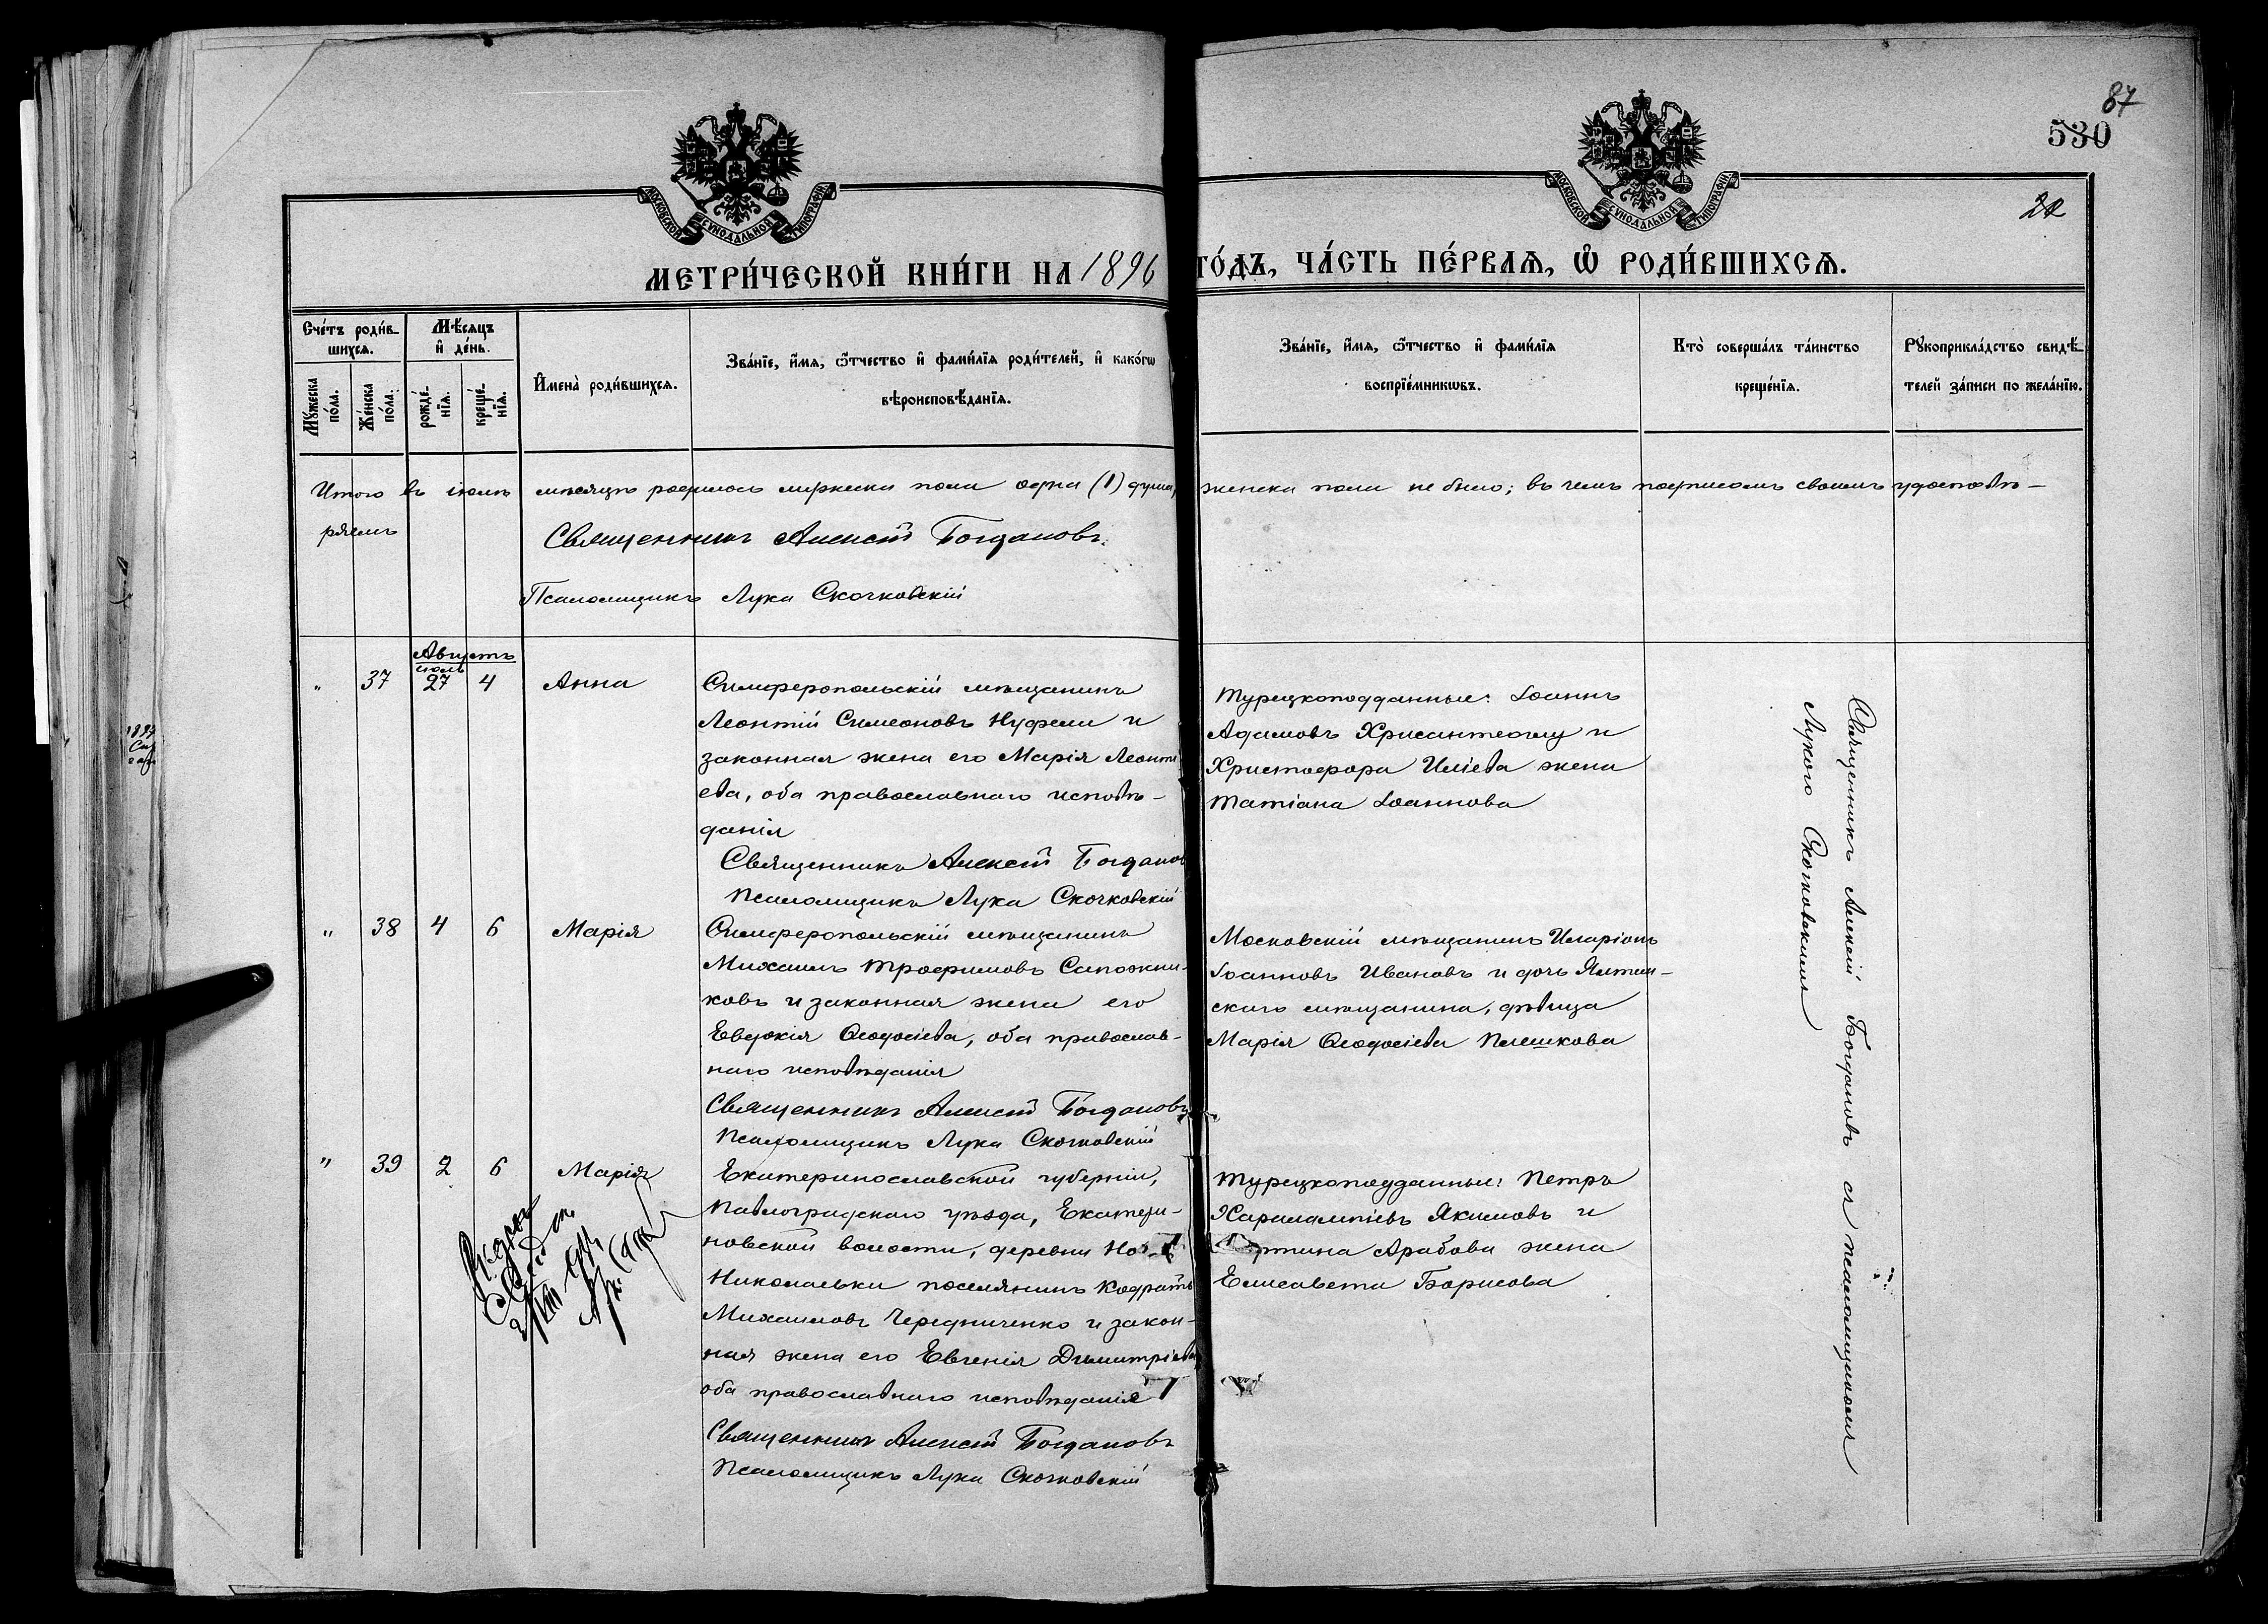 87
530
22
МОСКОВСКОЙ СѴНОДАЛЬНОЙ ТИПОГРАФІИ
МОСКОВСКОЙ СѴНОДАЛЬНОЙ ТИПОГРАФІИ
МЕТРИ́ЧЕСКОЙ КНИ́ГИ НА 1896 ГО́ДЪ, ЧА́СТЬ ПЕ́РВАѦ, Ѡ҆ РОДИ́ВШИХСѦ.
Сче́тъ роди́в-
шихсѧ.
Мꙋ́жеска по́ла.
Же́нска по́ла.
Мѣ́сѧцъ
и҆ де́нь.
рожде́-
нїѧ.
креще́-
нїѧ.
И҆мена̀ роди́вшихсѧ.
Зва́нїе, и҆́мѧ, ѻ҆́тчество и҆ фами́лїѧ роди́телей, и҆ како́гѡ
вѣроисповѣ́данїѧ.
Зва́нїе, и҆́мѧ, ѻ҆́тчество и҆ фами́лїѧ
воспрїе́мникѡвъ.
Кто̀ соверша́лъ та́инство
креще́нїѧ.
Рꙋкоприкла́дство свидѣ́-
телей за́писи по жела́нїю.
Итого въ іюлѣ мѣсяцѣ родилось мужеска пола одна (1) душа, женска пола не было; въ чемъ подписомъ своимъ удостовѣ-
ряемъ
Священникъ Алексій Богдановъ.
Псаломщикъ Лука Скочковскій
Августъ
" 37 іюль 27 4 Анна
Симферопольскій мѣщанинъ
Леонтій Симеоновъ Нуфели и
законная жена его Марія Леонті
ева, оба православнаго исповѣ-
данія
Священникъ Алексій Богданов
Псаломщикъ Лука Скочковскій
Турецкоподданные: Іоаннъ
Адамовъ Хрисантеому и
Христофора Иліева жена
Татіана Іоаннова
" 38 4 6 Марія
Симферопольскій мѣщанинъ
Михаилъ Трофимовъ Сапожни-
ковъ и законная жена его
Евдокія Ѳеодосіева, оба православ-
наго исповѣданія
Священникъ Алексій Богдановъ
Псаломщикъ Лука Скочковскій
Московскій мѣщанинъ Иларіонъ
Іоанновъ Ивановъ и дочь Ялтин-
скаго мѣщанина, дѣвица
Марія Ѳеодосіева Плешкова
" 39 2 6 Марія
Екатеринославской губерніи,
Павлоградскаго уѣзда, Екатери-
новской волости, деревни Но
Николаевки поселянинъ Кодратъ
Михаиловъ Чередниченко и закон-
ная жена его Евгенія Димитріева
оба православнаго исповѣданія
Священникъ Алексій Богдановъ
Псаломщикъ Лука Скочковскій
Турецкоподданные: Петръ
Харалампіевъ Якимовъ и
Арабова жена
Елисавета Борисова
Священникъ Алексій Богдановъ съ псаломщикомъ
Лукою Скочковскимъ